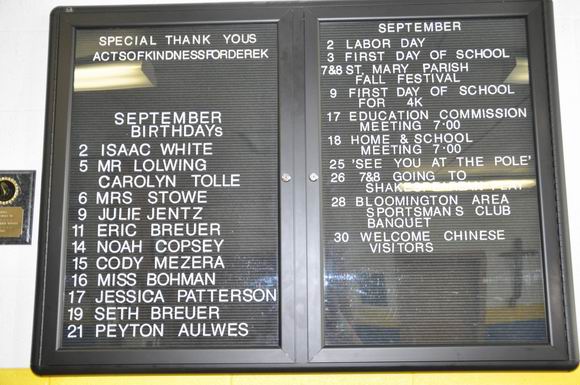 SPECIAL THANK YOUS
ACTSOFKINDNESSFORDEREK
SEPTEMBER
BIRTHDAYs
2 ISAAC WHITE
5 MR LOLWING
CAROLYN TOLLE
6 MRS STOWE
9 JULIE JENTZ
11 ERIC BREUER
14 NOAH COPSEY
15 CODY MEZERA
16 MISS BOHMAN
17 JESSICA PATTERSON
19 SETH BREUER
21 PEYTON AULWES
SEPTEMBER
2 LABOR DAY
3 FIRST DAY OF SCHOOL
7&8 ST. MARY PARISH
FALL FESTIVAL
9 FIRST DAY OF SCHOOL
FOR 4K
17 EDUCATION COMMISSION
MEETING 7:00
18 HOME & SCHOOL
MEETING 7:00
25 'SEE YOU AT THE POLE'
26 7&8 GOING TO
SHAKESPEAREAN PLAY
28 BLOOMINGTON AREA
SPORTSMAN'S CLUB
BANQUET
30 WELCOME CHINESE
VISITORS